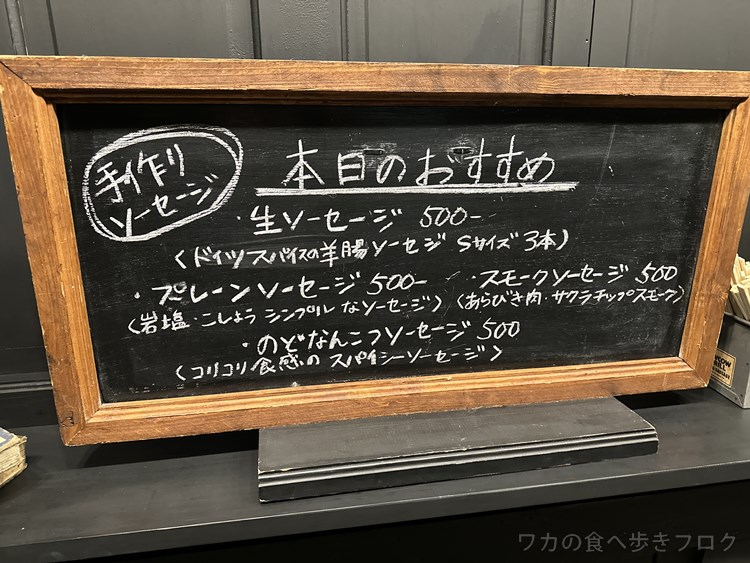 手作り
ソーセージ
本日のおすすめ
・生ソーセージ 500-
(ドイツスパイスの羊腸ソーセジ Sサイズ 3本)
・プレーンソーセージ 500-
・スモークソーセージ 500
(岩塩・こしょう シンプルなソーセージ)
(あらびき肉・サクラチップスモーク)
・のどなんこつソーセージ 500
(コリコリ食感の スパイシーソーセージ)
ワカの食べ歩きブログ